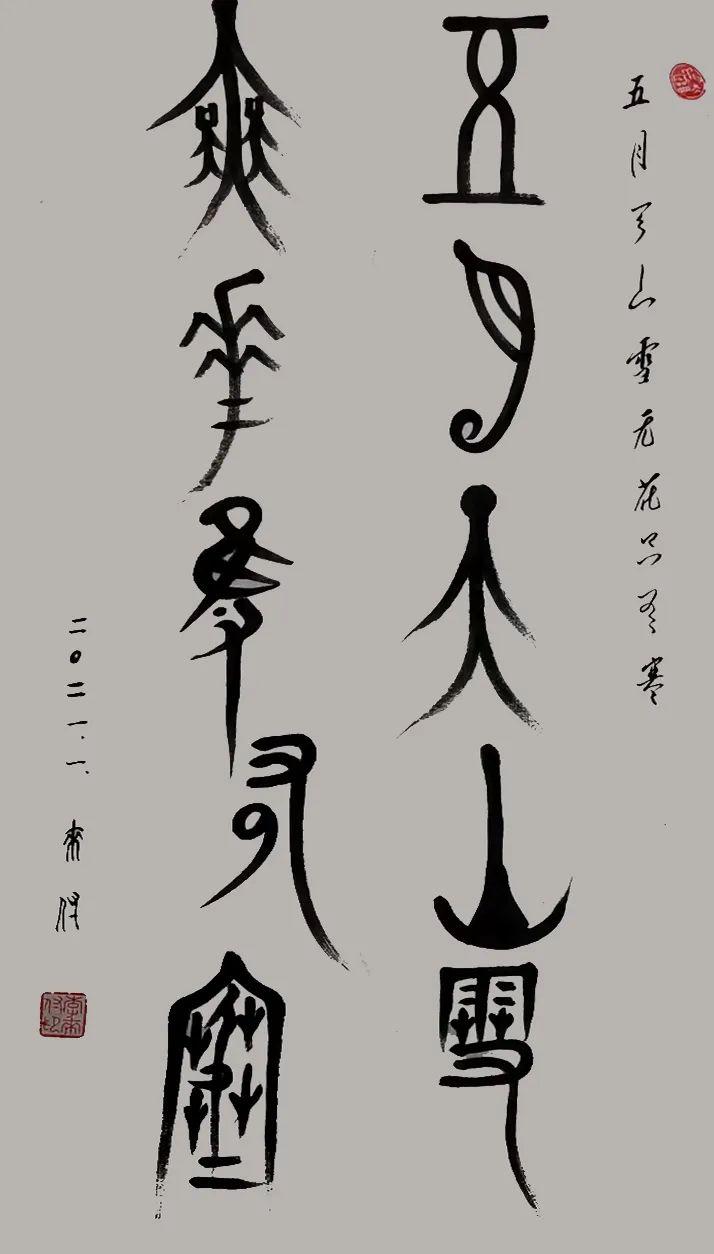 五月天山雪无花只有寒
五月天山雪
無華隻有寒
二〇二一.一、來